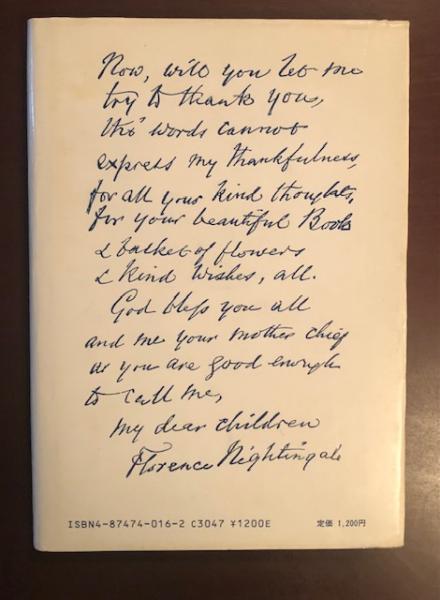 Now, will you let me
try to thank you,
tho' words cannot
express my thankfulness,
for all your kind thoughts,
for your beautiful Books
& basket of flowers
& kind wishes, all.
God bless you all
and me your mother chief
as you are good enough
to call me,
my dear children
Florence Nightingale
ISBN4-87474-016-2 C3047 ¥1200E 定価 1,200円